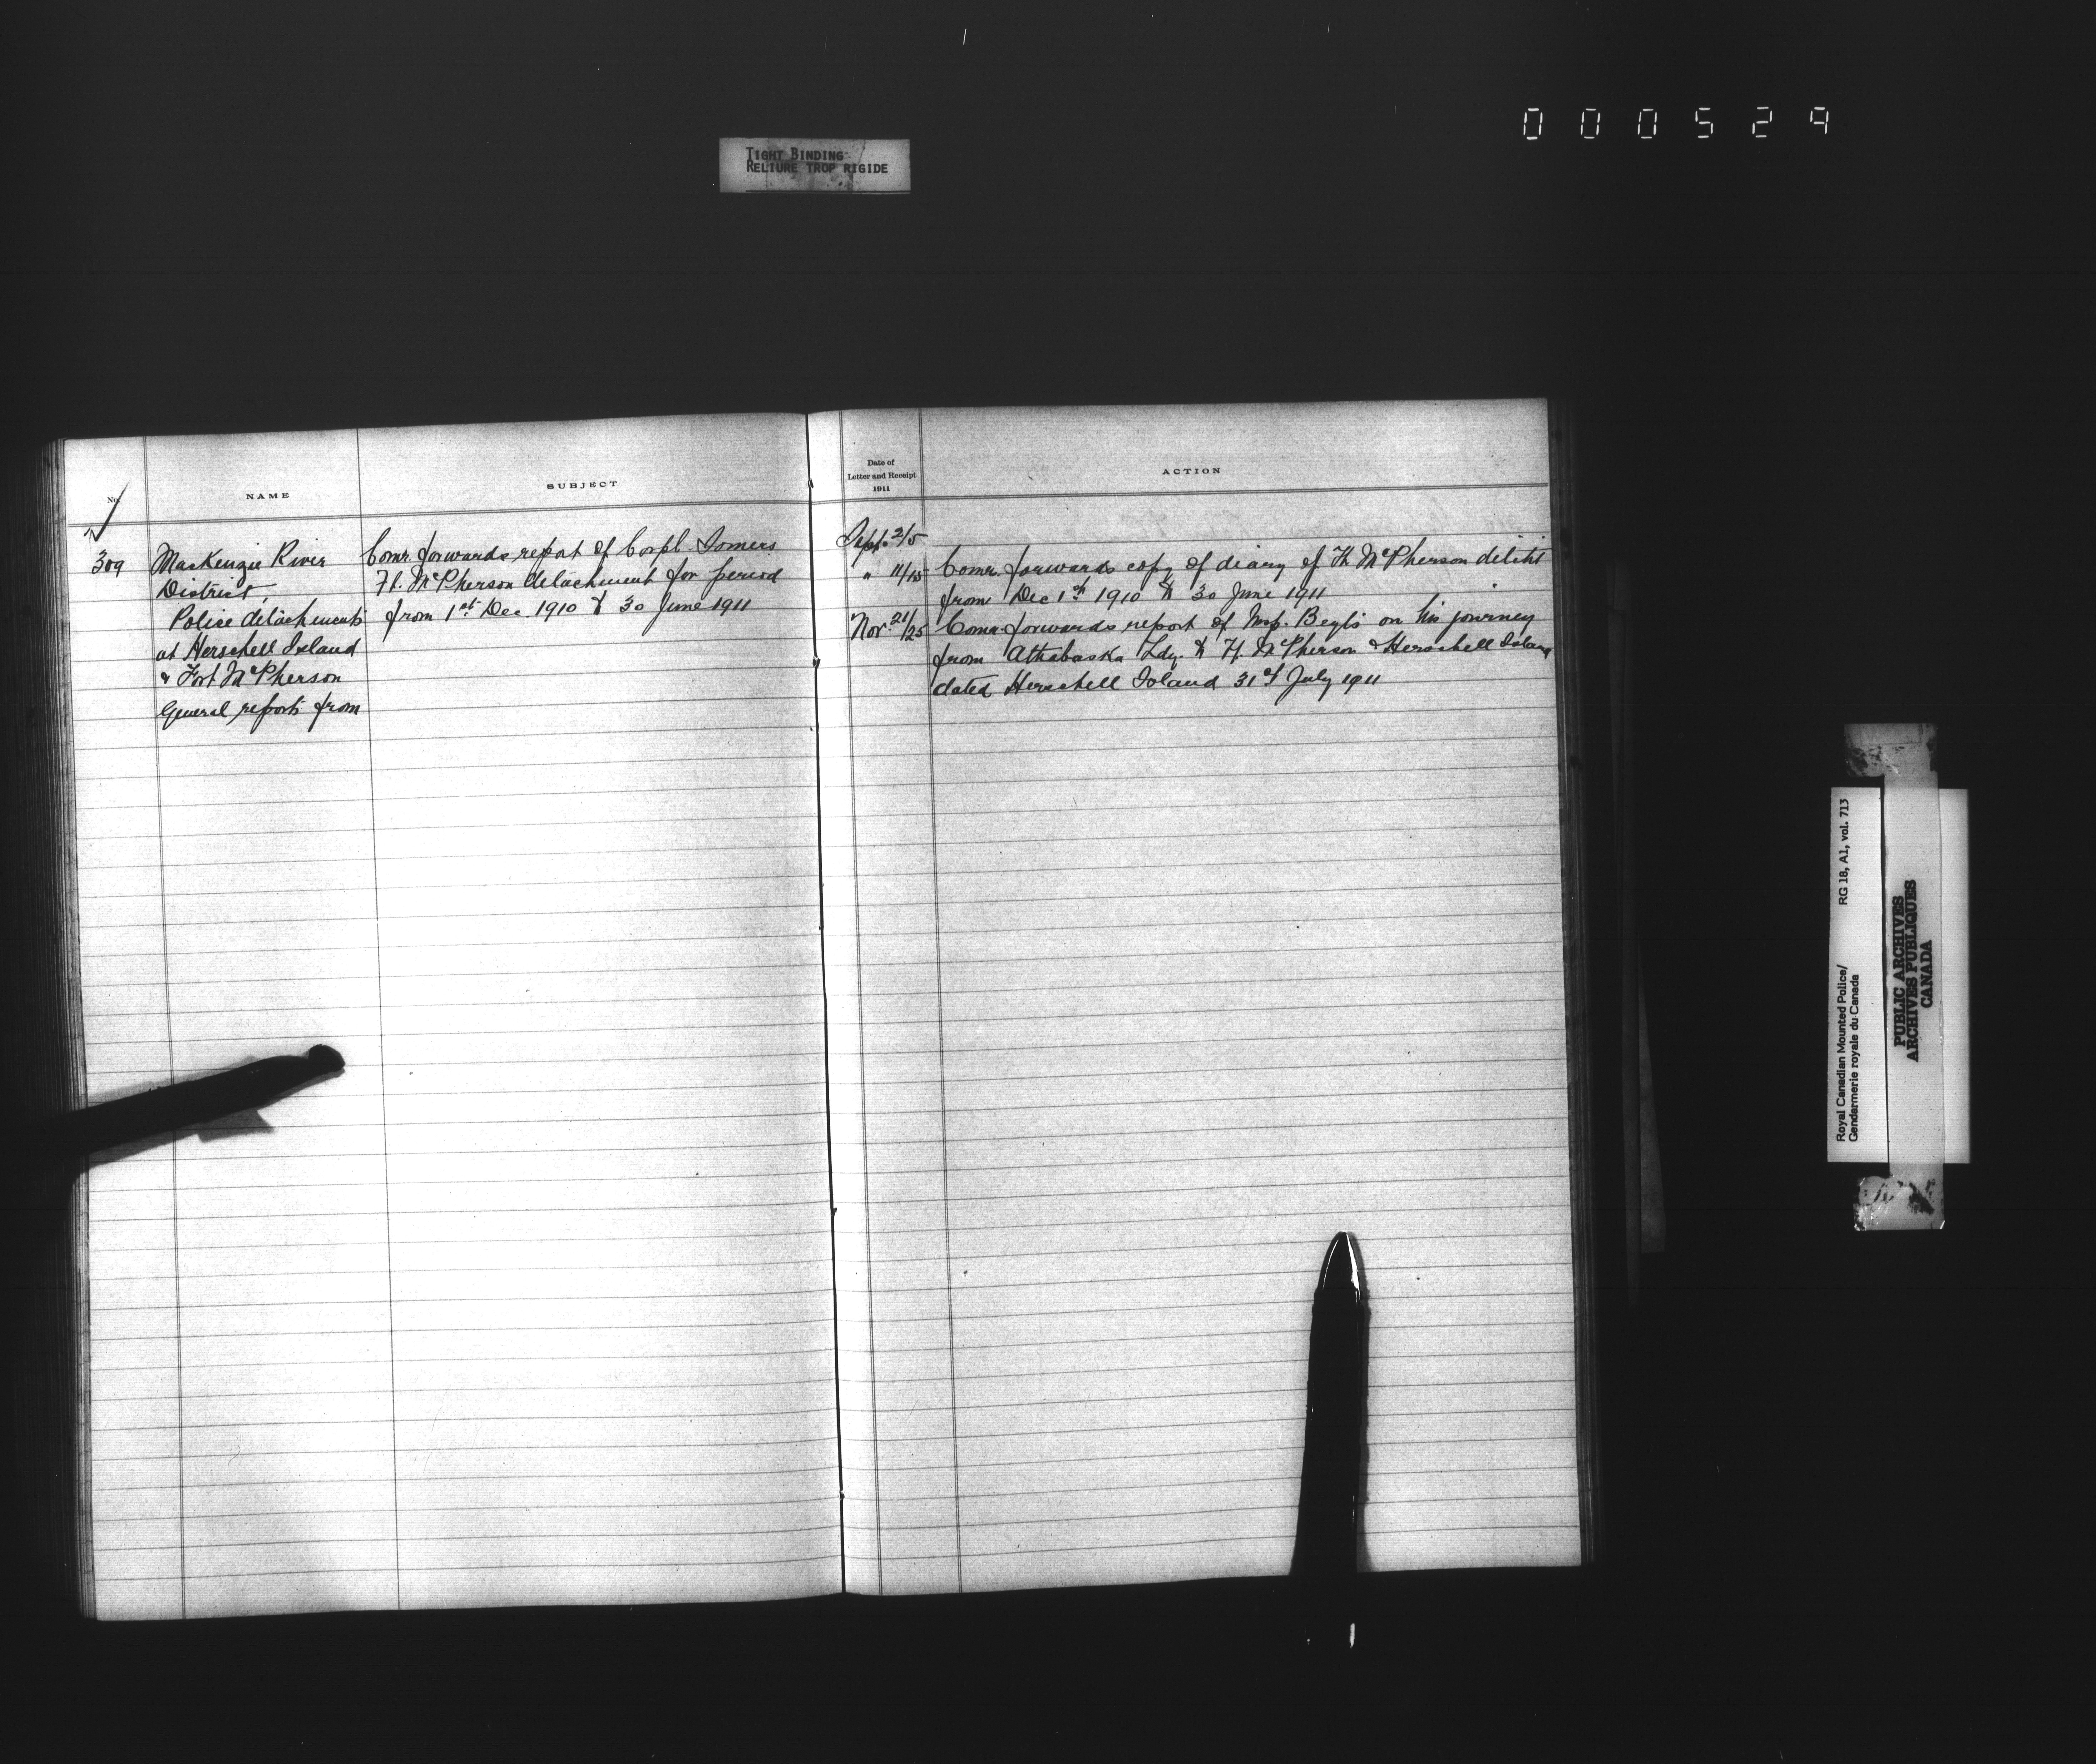 000529
TIGHT BINDING
RELIURE TROP RIGIDE
No.
NAME
SUBJECT
Date of
Letter and Receipt
1911
ACTION
309
MacKenzie River
District,
Police detachments
at Herschell Island
& Fort McPherson
General reports from
Comr. forwards report of Corpl. Somers
Ft. McPherson detachment for period
from 1st Dec. 1910 to 30 June 1911
Sept. 2/5
" 11/15 Comr. forwards copy of diary of Ft. McPherson
from Dec 1st 1910 to 30 June 1911
Nov. 21/25 Comr. forwards report of Insp. Beyts on his journey
from Athabaska Ldg. to Ft. McPherson & Herschell Island
dated Herschell Island 31st July 1911
Royal Canadian Mounted Police/
Gendarmerie royale du Canada
RG 18, A1, vol. 713
PUBLIC ARCHIVES
ARCHIVES PUBLIQUES
CANADA